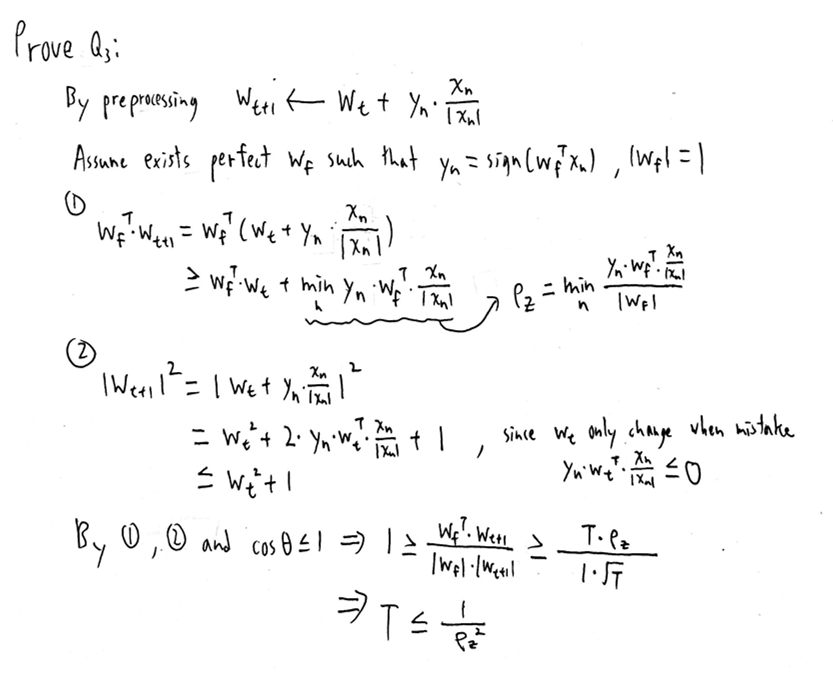 Prove Q₃:
By preprocessing W_{t+1} ← W_t + y_n · x_n/|x_n|
Assume exists perfect W_f such that y_n = sign(W_f^T x_n), |W_f| = 1
①
W_f^T · W_{t+1} = W_f^T (W_t + y_n · x_n/|x_n|)
≥ W_f^T · W_t + min_n y_n · W_f^T · x_n/|x_n| → ρ_z = min_n (y_n · W_f^T · x_n/|x_n|)/|W_f|
②
|W_{t+1}|² = | W_t + y_n · x_n/|x_n| |²
= W_t² + 2 · y_n · W_t^T · x_n/|x_n| + 1 , since W_t only change when mistake
≤ W_t² + 1 y_n · W_t^T · x_n/|x_n| ≤ 0
By ①, ② and cosθ ≤ 1 ⇒ 1 ≥ (W_f^T · W_{t+1})/(|W_f| · |W_{t+1}|) ≥ (T · ρ_z)/(1 · √T)
⇒ T ≤ 1/ρ_z²